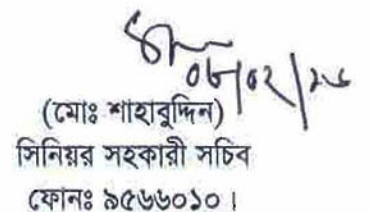 ০৮/০২/২৬
(মোঃ শাহাবুদ্দিন)
সিনিয়র সহকারী সচিব
ফোনঃ ৯৫৬৬০১০।